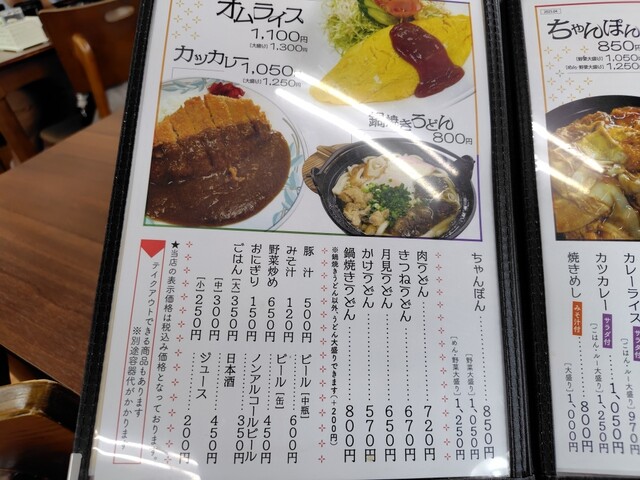 オムライス
1,100円
(大盛り) 1,300円
カツカレー 1,050円
(大盛り) 1,250円
鍋焼きうどん
800円
ちゃんぽん………850円
[野菜大盛り] 1,050円
[めん・野菜大盛り] 1,250円
肉うどん………720円
きつねうどん………670円
月見うどん………650円
かけうどん………570円
鍋焼きうどん………800円
※鍋焼きうどん以外、うどん大盛りできます(+200円)
豚汁 500円
みそ汁 120円
野菜炒め 650円
おにぎり 150円
ごはん[大] 350円
[中] 300円
[小] 250円
ビール[中瓶] 600円
ビール[缶] 450円
ノンアルコールビール 350円
日本酒 450円
ジュース 200円
★当店の表示価格は税込み価格となっております。
テイクアウトできる商品もあります
※別途容器代がかかります
ちゃんぽん
850円
(野菜大盛り) 1,050円
(めん・野菜大盛り) 1,250円
カレーライス サラダ付
[ごはん・ルー大盛り] 970円
カツカレー サラダ付 1,050円
[ごはん・ルー大盛り] 1,250円
焼きめし みそ汁付 800円
[大盛り] 1,000円